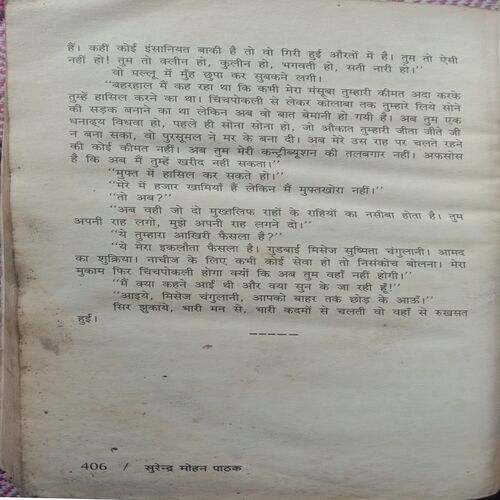 हैं। कहीं कोई इंसानियत बाकी है तो वो गिरी हुई औरतों में है। तुम तो ऐसी
नहीं हो! तुम तो क्लीन हो, कुलीन हो, भगवती हो, सती नारी हो।”
वो पल्लू में मुँह छुपा कर सुबकने लगी।
“बहरहाल मैं कह रहा था कि कभी मेरा मंसूबा तुम्हारी कीमत अदा करके
तुम्हें हासिल करने का था। चिंचपोकली से लेकर कोलाबा तक तुम्हारे लिये सोने
की सड़क बनाने का था लेकिन अब वो बात बेमानी हो गयी है। अब तुम एक
धनाढ्य विधवा हो, पहले ही सोना सोना हो, जो औकात तुम्हारी जीता जीते जी
न बना सका, वो पुरसूमल ने मर के बना दी। अब मेरे उस राह पर चलते रहने
की कोई कीमत नहीं। अब तुम मेरी कन्ट्रीब्यूशन की तलबगार नहीं। अफसोस
है कि अब मैं तुम्हें खरीद नहीं सकता।”
“मुफ्त में हासिल कर सकते हो।”
“मेरे में हजार खामियाँ हैं लेकिन मैं मुफ्तखोरा नहीं।”
“तो अब?”
“अब वही जो दो मुख्तलिफ राहों के राहियों का नसीबा होता है। तुम
अपनी राह लगो, मुझे अपनी राह लगने दो।”
“ये तुम्हारा आखिरी फैसला है?”
“ये मेरा इकलौता फैसला है। गुडबाई मिसेज सुष्मिता चंगुलानी। आमद
का शुक्रिया। नाचीज के लिए कभी कोई सेवा हो तो निसंकोच बोलना। मेरा
मुकाम फिर चिंचपोकली होगा क्यों कि अब तुम वहाँ नहीं होगी।”
“मैं क्या कहने आई थी और क्या सुन के जा रही हूँ!”
“आइये, मिसेज चंगुलानी, आपको बाहर तक छोड़ के आऊँ।”
सिर झुकाये, भारी मन से, भारी कदमों से चलती वो वहाँ से रुखसत
हुई।
-----
406 / सुरेन्द्र मोहन पाठक